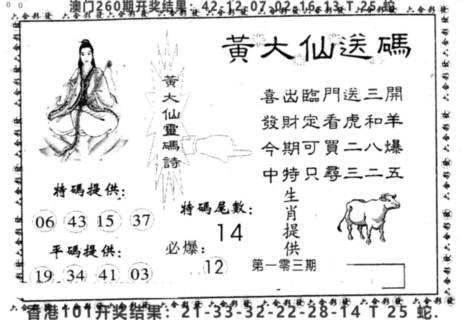 澳门260期开奖结果：42-12-07-02-16-13 T 25 蛇
黃大仙送碼
黃大仙靈碼詩
喜出臨門送三開
發財定看虎和羊
今期可買二八爆
中特只尋三二五
特碼提供：
06 43 15 37
平碼提供：
19 34 41 03
特碼尾數：
14
必爆：
12
生肖提供
第一零三期
香港101开奖结果：21-33-32-22-28-14 T 25 蛇.